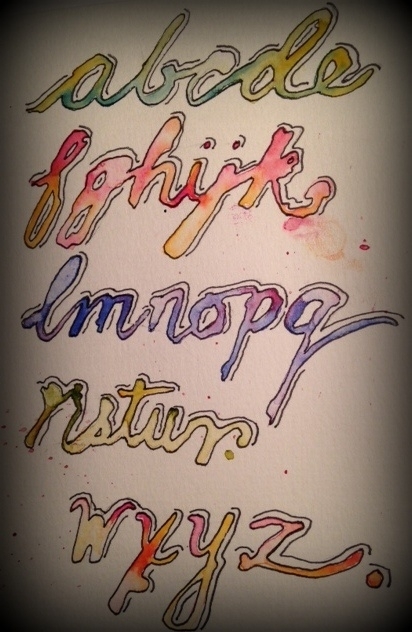 abcde
fghijk
lmnopq
rstuv
wxyz.